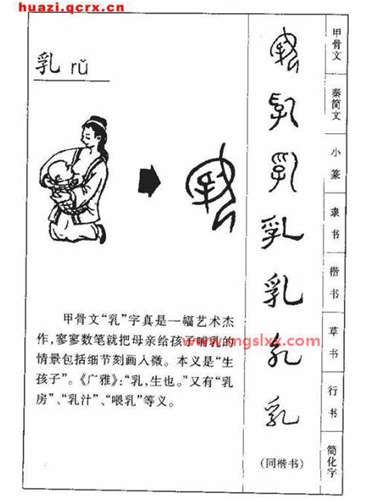 huazi.qcrx.cn
乳 rǔ
甲骨文“乳”字真是一幅艺术杰
作，寥寥数笔就把母亲给孩子哺乳的
情景包括细节刻画入微。本义是“生
孩子”。《广雅》：“乳，生也。”又有“乳
房”、“乳汁”、“喂乳”等义。
甲骨文
秦简文
小篆
隶书
楷书
草书
行书
简化字
乳
乳
乳
乳
乳
乳
乳
（同楷书）